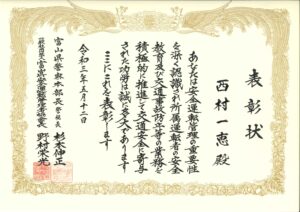 表彰状
西村一恵殿
あなたは安全運転管理の重要性
を深く認識され所属運転者の安全
教育及び交通事故防止等の業務を
積極的に推進して交通安全に寄与
された功労は誠に多大であります
ここにこれを表彰します
令和三年五月十二日
富山県警察本部長
杉本伸正
野村栄光